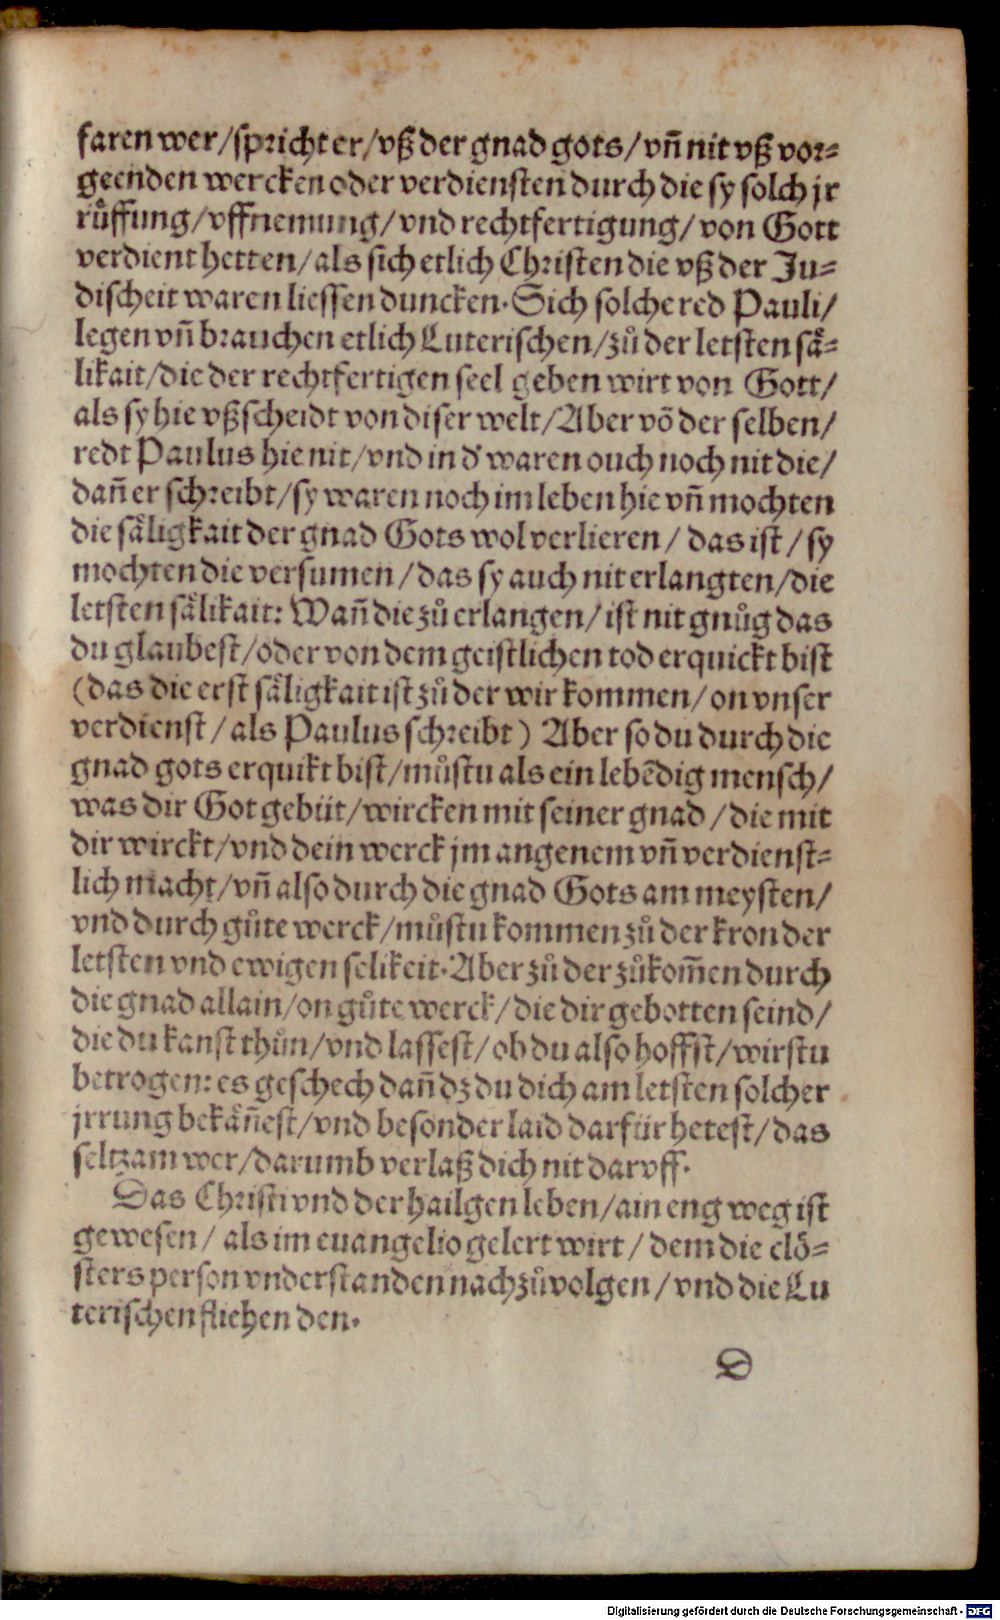 faren wer/spricht er/vß der gnad gots/vñ nit vß vor⸗
geenden wercken oder verdiensten durch die sy solch jr
růffung/vffnemung/vnd rechtfertigung/von Gott
verdient hetten/als sich etlich Christen die vß der Ju⸗
discheit waren liessen duncken. Sich solche red Pauli/
legen vñ brauchen etlich Luterischen/zů der letsten sä⸗
likait/die der rechtfertigen seel geben wirt von Gott/
als sy hie vßscheidt von diser welt/Aber võ der selben/
redt Paulus hie nit/vnd in d' waren ouch noch nit die/
dañ er schreibt/sy waren noch im leben hie vñ mochten
die säligkait der gnad Gots wol verlieren/ das ist/ sy
mochten die versumen/das sy auch nit erlangten/die
letsten sälikait: Wañ die zů erlangen/ ist nit gnůg das
du glaubest/oder von dem geistlichen tod erquickt bist
(das die erst säligkait ist zů der wir kommen/on vnser
verdienst/ als Paulus schreibt) Aber so du durch die
gnad gots erquikt bist/můstu als ein lebẽdig mensch/
was dir Got gebüt/wircken mit seiner gnad/die mit
dir wirckt/vnd dein werck jm angenem vñ verdienst⸗
lich macht/vñ also durch die gnad Gots am meysten/
vnd durch gůte werck/můstu kommen zů der kron der
letsten vnd ewigen selikeit. Aber zů der zůkom̃en durch
die gnad allain/on gůte werck/die dir gebotten seind/
die du kanst thůn/vnd lassest/ob du also hoffst/wirstu
betrogen: es geschech dañ dz du dich am letsten solcher
jrrung bekäñest/vnd besonder laid darfür hetest/das
seltzam wer/darumb verlaß dich nit daruff.
Das Christi vnd der hailgen leben/ain eng weg ist
gewesen/ als im euangelio gelert wirt/ dem die clö⸗
sters person vnderstanden nachzůvolgen/vnd die Lu
terischen fliehen den.
D
Digitalisierung gefördert durch die Deutsche Forschungsgemeinschaft - DFG